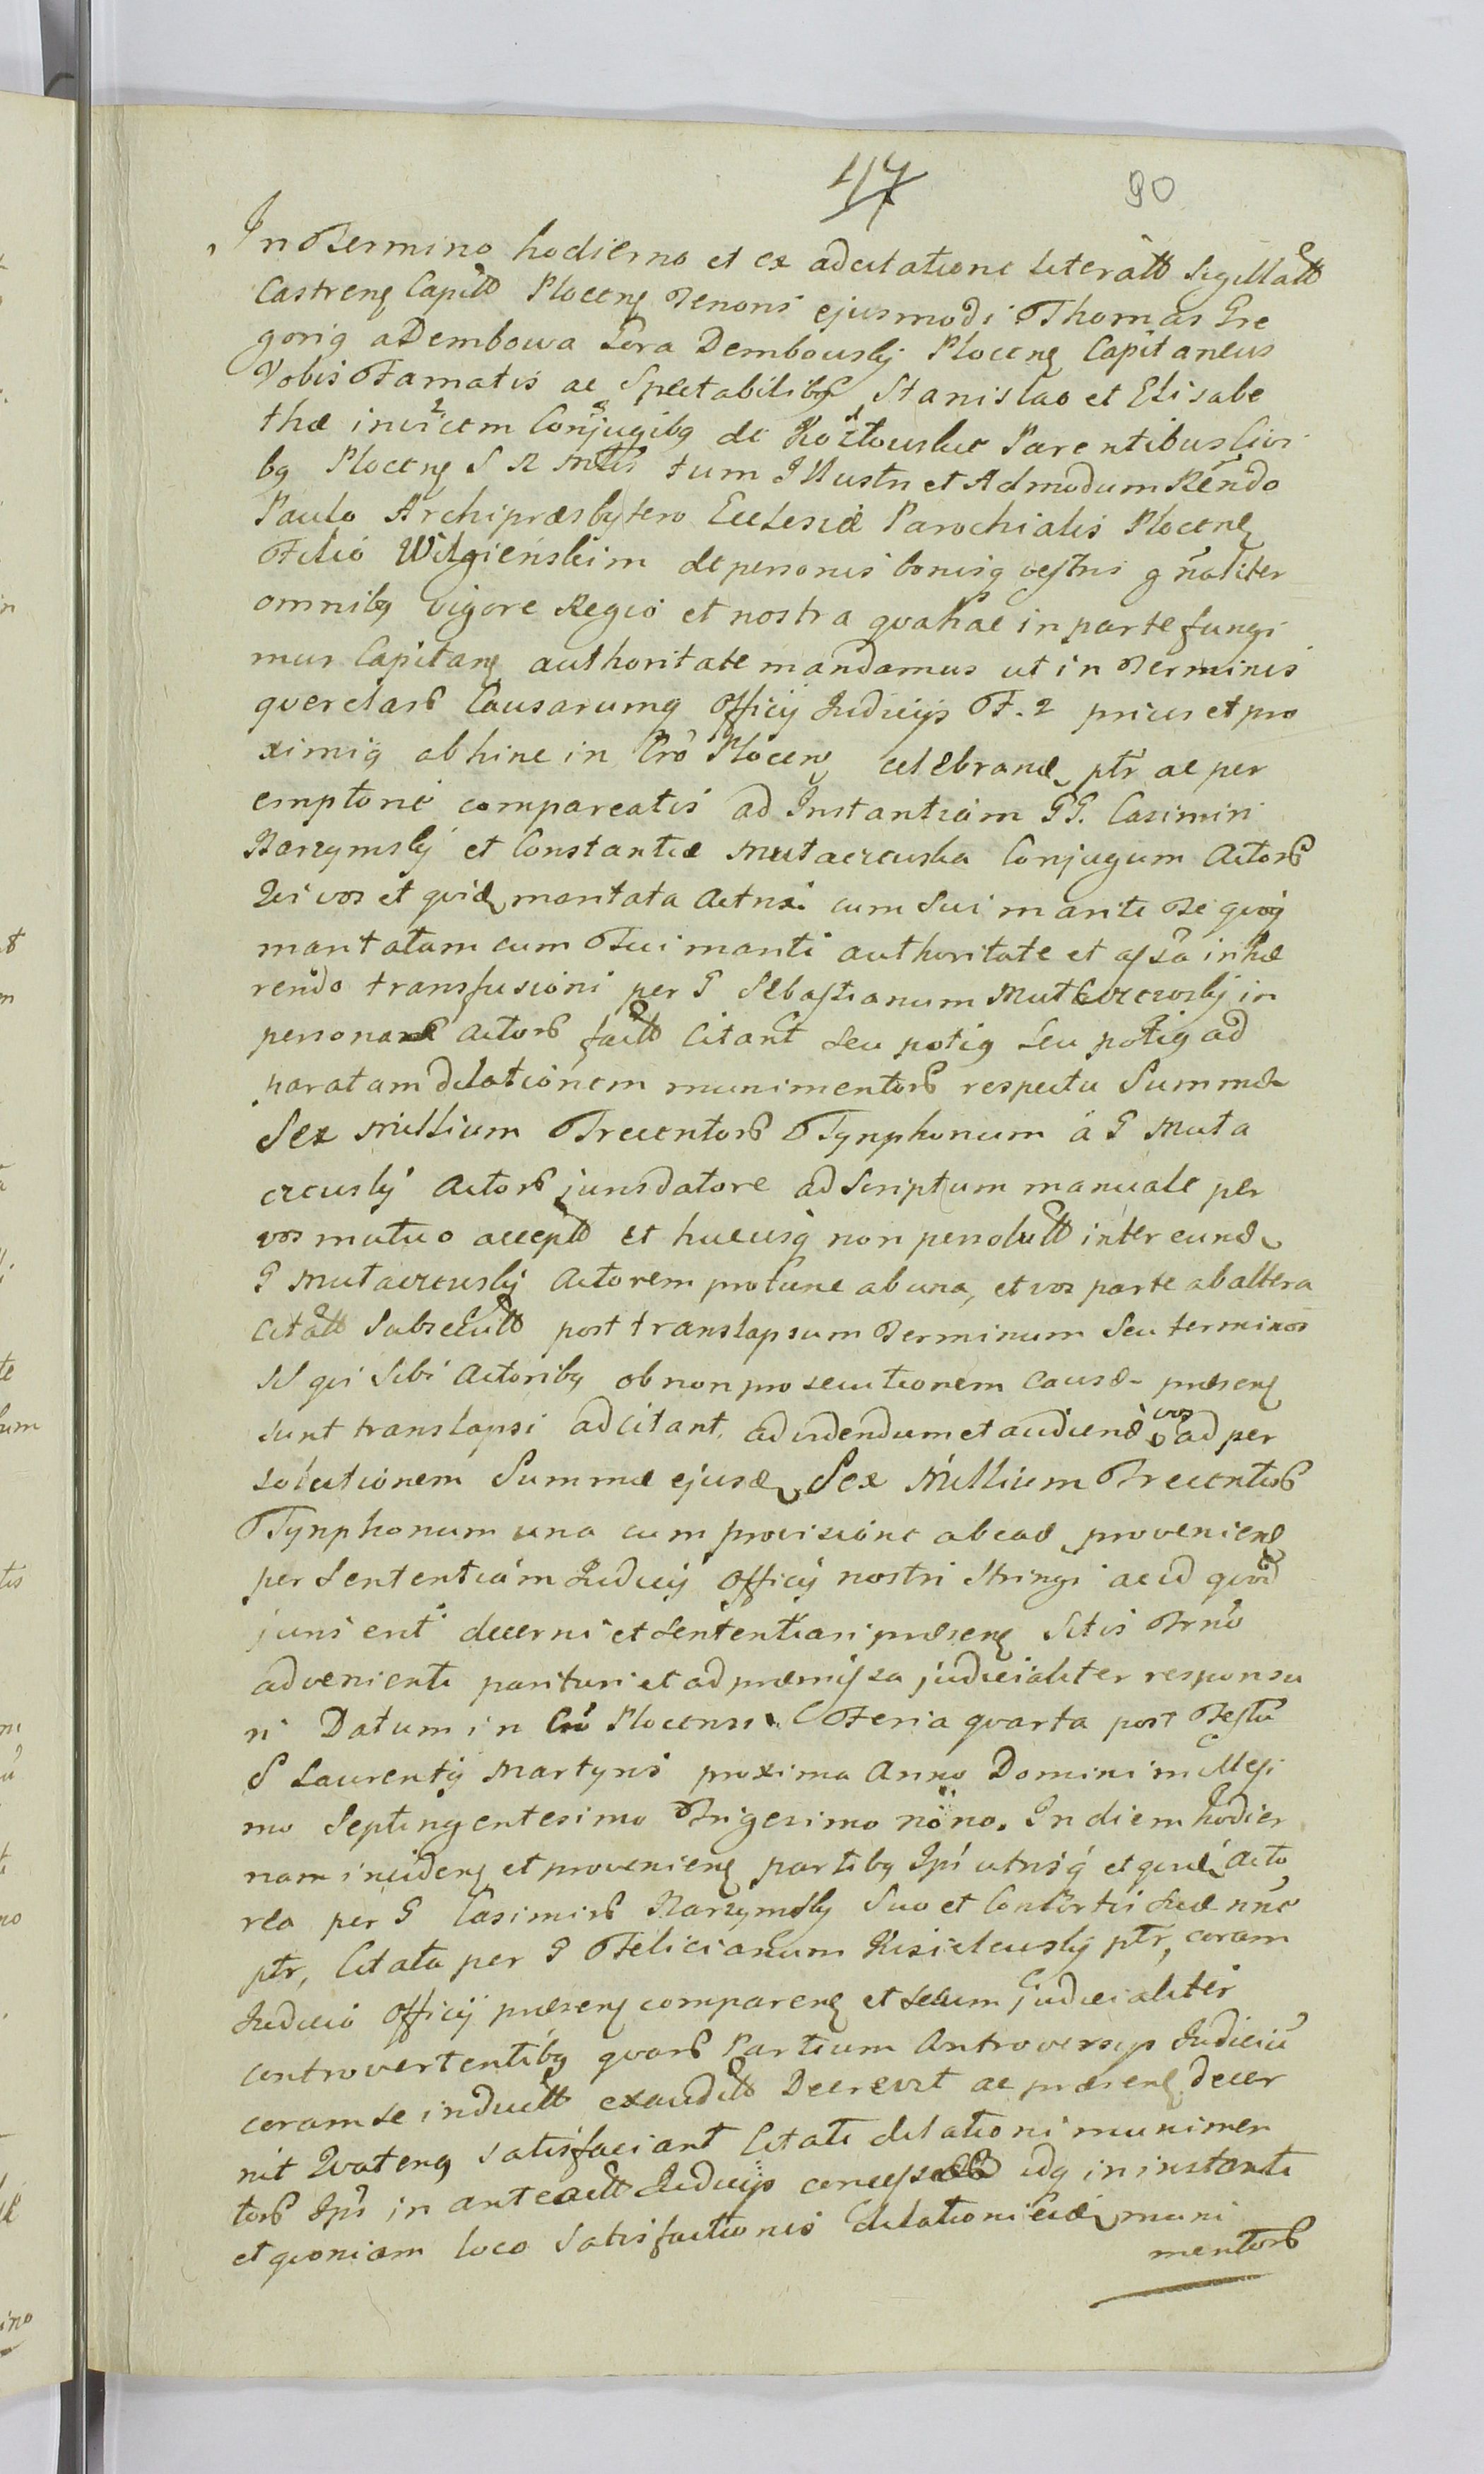 117 90
In Termino hodierno et ex adcitatione Literałł Sigillałł
Castren Capitł Plocen Tenoris ejusmodi Thomas Gre
gorig a Dembowa Gora Dembowskij Plocen Capitaneus
Vobis Famatis ac Spectabilibq Stanislao et Elisabe
thæ invicem Conjugibq de Kozłowskie Parentibus Civi
bq Plocen S R Mtis tum Illustri et Admodum Rēndo
Paulo Archipræsbytero Ecclesiæ Parochialis Plocen
Filio Wilgienskim de personis bonisq vestris gñaliter
omnibq vigore Regio et nostra qva hac in parte fungi
mur Capitan authoritate mandamus ut in Terminis
querelarß Causarumq Officij Judicijs F. 2 prius et pro
ximiq abhinc in Cro Plocen celebrand ptr ac per
emptorie compareatis ad Instantiam GG. Casimiri
Narzymskij et Constantiæ Mutaczewska Conjugum Actorß
Qui vos et qvid maritata Actrix cum Sui mariti Te qvoq
maritatam cum Tui mariti authoritate et assā inhæ
rendo transfusioni per G Sebastianum Mutaczewskij in
personas Actorß factł Citant Seu potiq Seu potiq ad
paratam dilationem munimentorß respectu Summæ
Sex Millium Trecentorß Tynphonum à G Muta
czewskij Actorß jurisdatore ad Scriptum manuale per
vos mutuo acceptł et hucusq non persolutł inter eund
G Mutaczewskij Actorem protunc ab una, et vos parte ab altera
Citałł Subsecutł post translapsum Terminum Seu terminos
SI qui Sibi Actoribq ob non prosecutionem Causæ præsen
sunt translapsi adcitant. ad videndum et audiend vos ad per
solutionem Summæ ejusd Sex Millium Trecentorß
Tynphonum una cum provisione ab ead provenien
per Sententiam Judicij Officij nostri Stringi ac id qvod
juris erit decerni et Sententiari præsen Sitis Trno
advenienti parituri et ad præmissa judicialiter responsu
ri Datum in Cro Plocensi Feria qvarta post Festū
S Laurentij Martyris proxima Anno Domini millesi
mo Septingentesimo Trigesimo nono. In diem hodier
nam inciden et provenien partibq Ipi utrisq et qvid Acto
rea per G Casimirß Narzymskij Suo et Consortis Suæ nnē
ptr, Citata per G Felicianum Kisielewskij ptr, coram
Judicio Officij præsen comparen et Secum judicialiter
controvertentibq qvarß Partium Controversijs Judiciū
coram se inductł exauditł Decrevit ac præsen decer
nit Qvatenq Satisfaciant Citati dilationi munimen
torß Ipis in anteactł Judicijs concess idq in instanti
et qvoniam loco Satisfactionis dilationi ejusd muni
mentorß